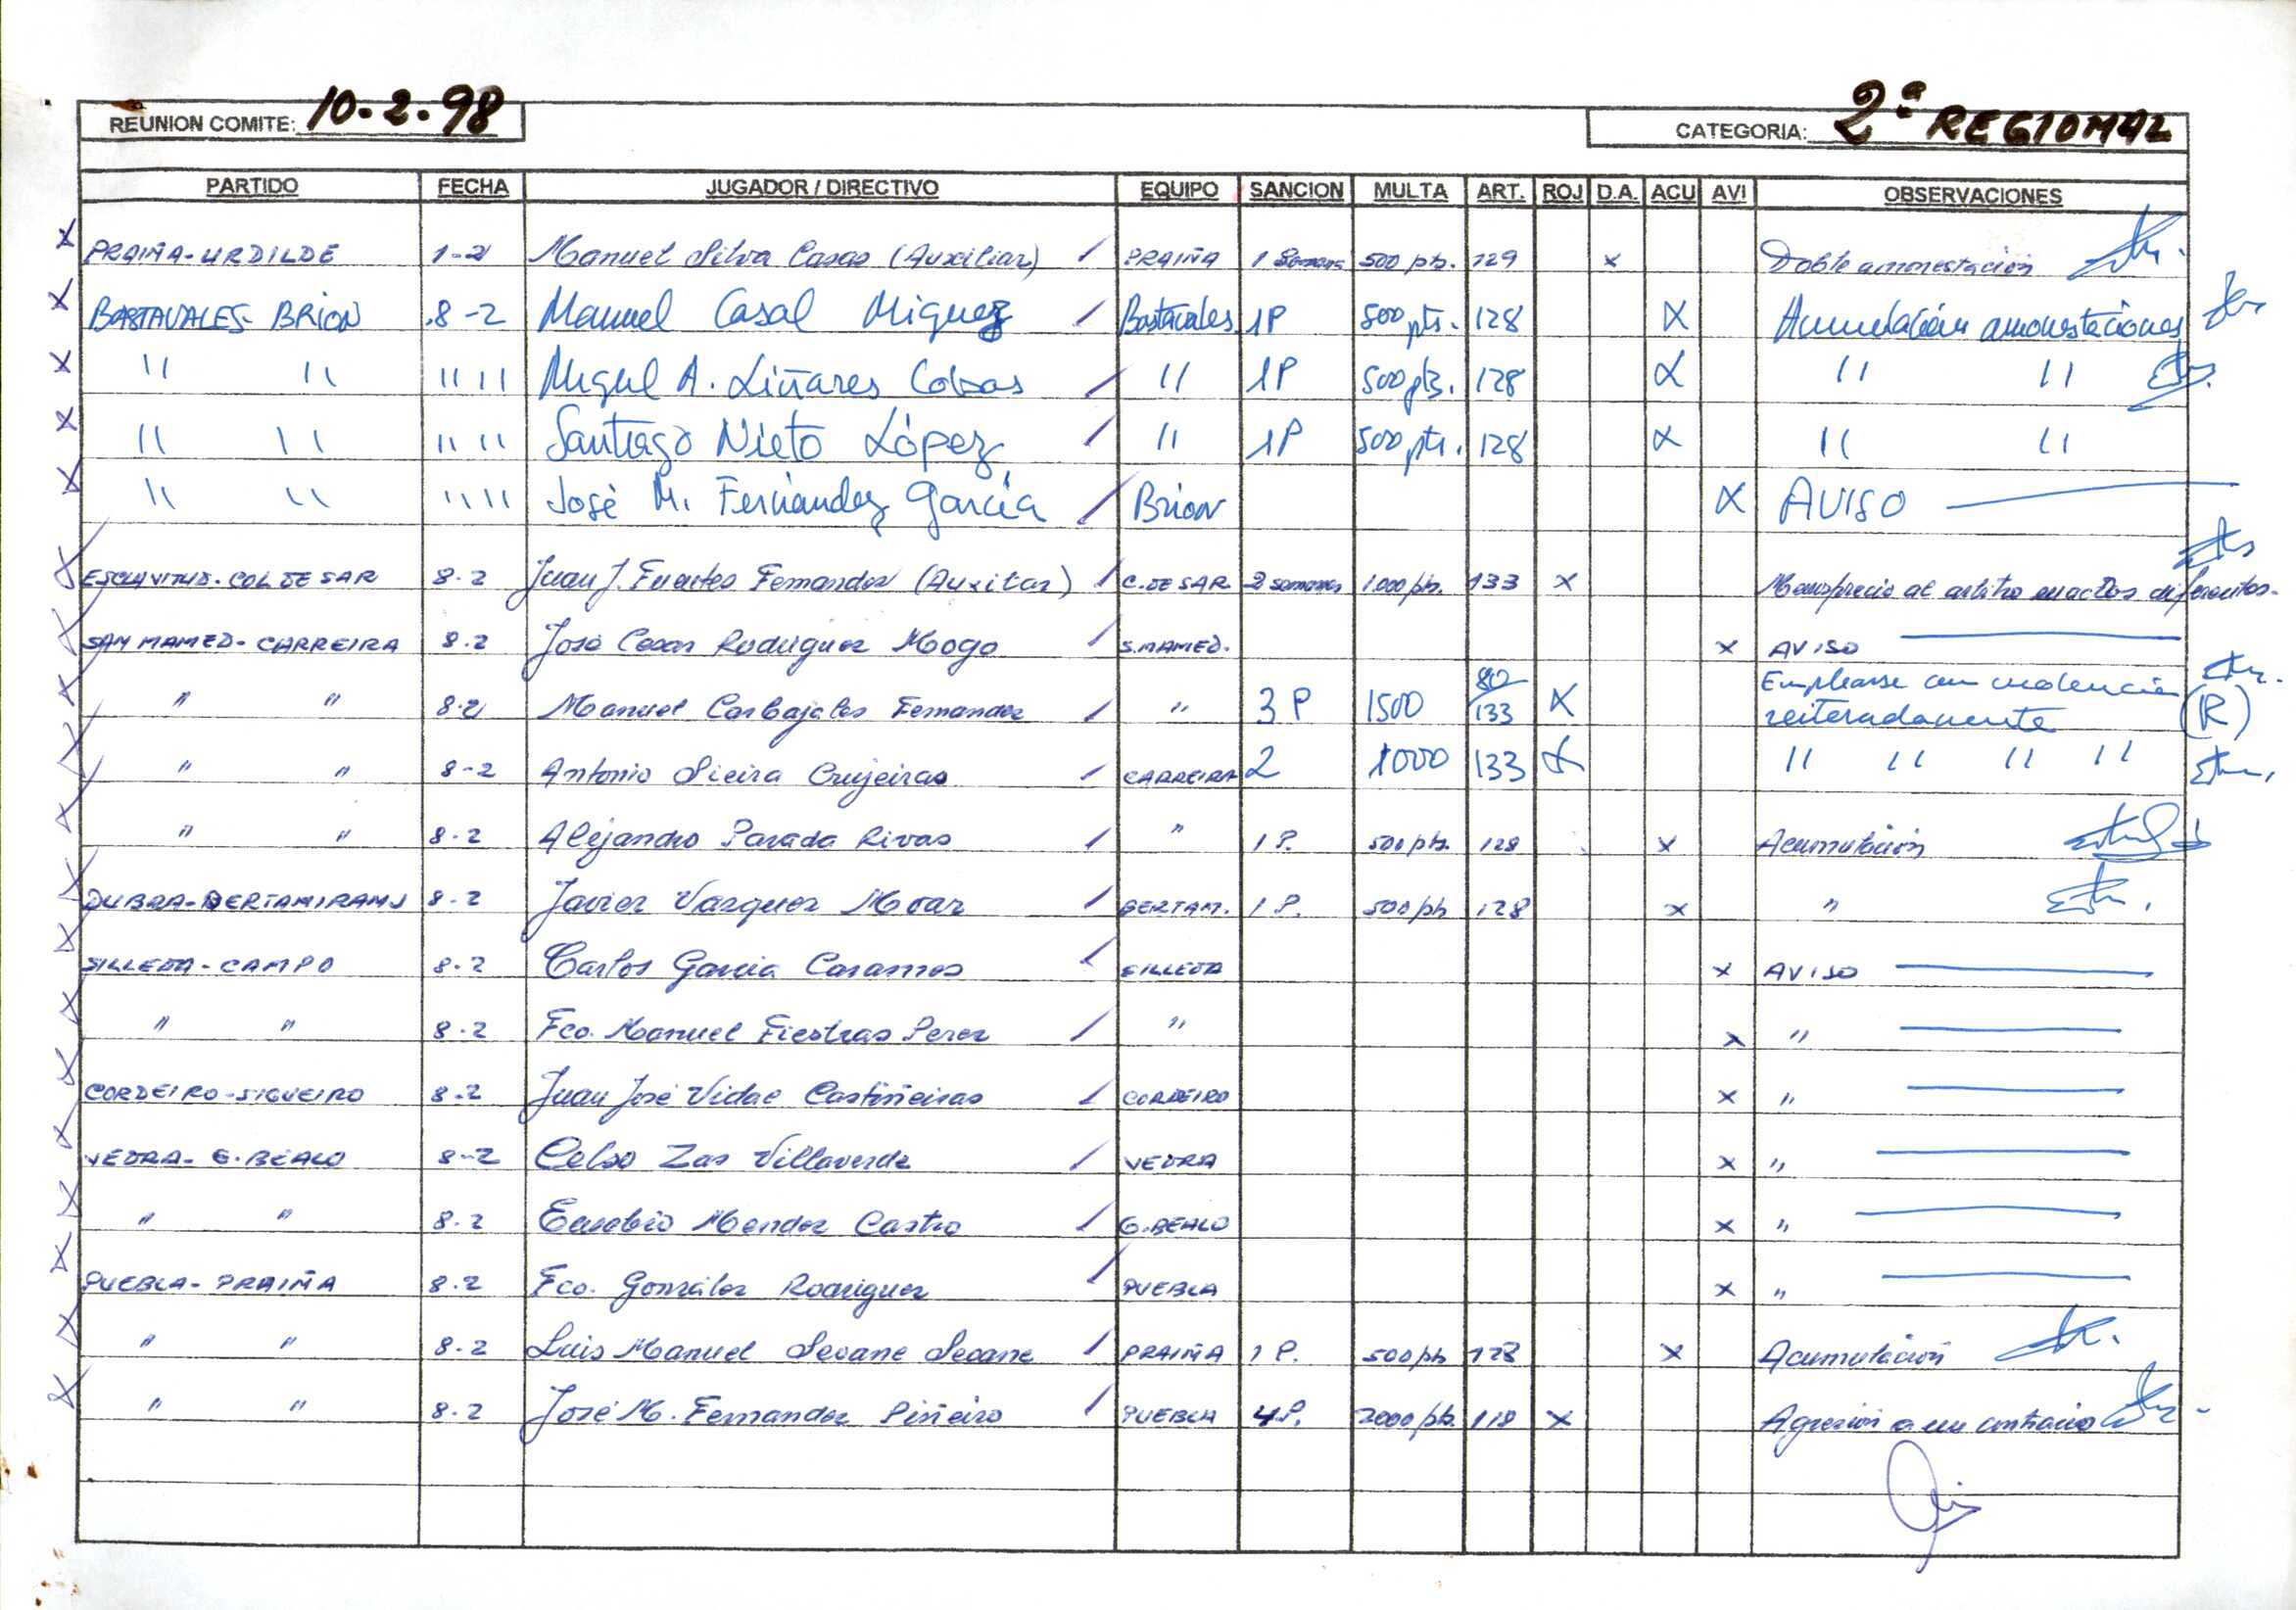 REUNION COMITE: 10-2-98
CATEGORIA: 2ª REGIONAL
PARTIDO FECHA JUGADOR / DIRECTIVO EQUIPO SANCION MULTA ART. ROJ D.A. ACU AVI OBSERVACIONES
X PRAIÑA-URDILDE 1-2 Manuel Silva Casas (Auxiliar) / PRAIÑA 1 Semana 500 pts. 129 x Doble amonestación
X BASTAVALES-BRION 8-2 Manuel Casal Miguez / Bastavales 1P 500 pts. 128 X Acumulación amonestaciones
X " " " " Miguel A. Liñares Cobas / " 1P 500 pts. 128 X " "
X " " " " Santiago Nieto López / " 1P 500 pts. 128 X " "
X " " " " José M. Fernández García / Brion X AVISO
X ESCLAVITUD-COL DE SAR 8-2 Juan J. Fuentes Fernandez (Auxiliar) / C. DE SAR 2 semanas 1.000 pts. 133 x Menosprecio al arbitro en actos diferentes.
X SAN MAMED-CARREIRA 8-2 José Cesar Rodriguez Mogo / S. MAMED. x AVISO
X " " 8-2 Manuel Carbajales Fernandez / " 3 P 1500 80/133 X Emplearse con violencia reiteradamente (R)
X " " 8-2 Antonio Sieira Crujeiras / CARREIRA 2 1000 133 X " " " "
X " " 8-2 Alejandro Parada Rivas / " 1 P. 500 pts. 128 x Acumulación
X DUBRA-BERTAMIRANS 8-2 Javier Vazquez Moar / BERTAM. 1 P. 500 pts 128 x "
X SILLEDA-CAMPO 8-2 Carlos Garcia Caramos / SILLEDA x AVISO
X " " 8-2 Fco. Manuel Fiestras Perez / " x "
X CORDEIRO-SIGUEIRO 8-2 Juan José Vidal Castiñeiras / CORDEIRO x "
X VEDRA-G. BEALO 8-2 Celso Zas Villaverde / VEDRA x "
X " " 8-2 Eusebio Mendez Castro / G. BEALO x "
X PUEBLA-PRAIÑA 8-2 Fco. González Rodriguez / PUEBLA x "
X " " 8-2 Luis Manuel Seoane Seoane / PRAIÑA 1 P. 500 pts 128 x Acumulación
X " " 8-2 José M. Fernandez Piñeiro / PUEBLA 4 P. 2000 pts. 118 x Agresión a un contrario